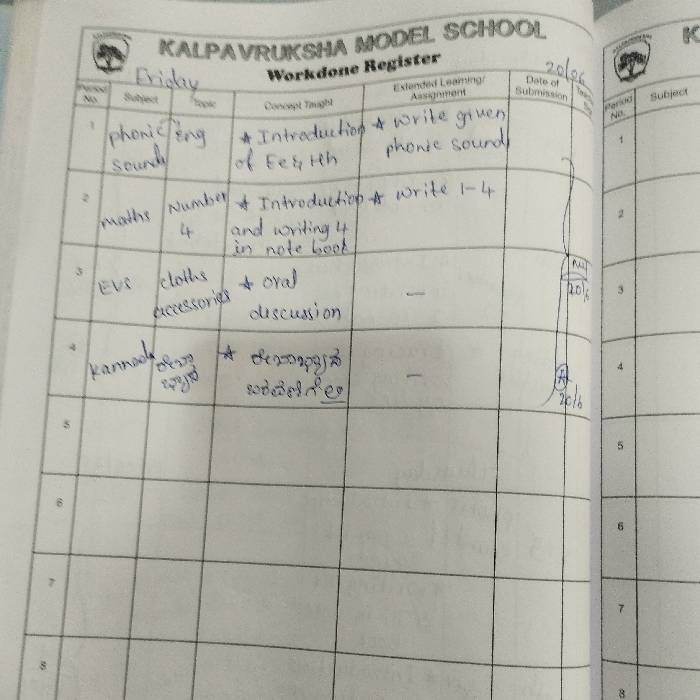 KALPAVRUKSHA MODEL SCHOOL
Workdone Register
Friday
20/06
Period No. Subject Topic Concept Taught Extended Learning/ Assignment Date of Submission
1 phonic sound Eng * Introduction of Ee & Hh * write given phonic sound
2 maths Number 4 * Introduction and writing 4 in note book * write 1-4
3 EVS cloths accessories * oral discussion -
20/6
4 Kannada * -
20/6
5
6
7
8
K
Period No. Subject
1
2
3
4
5
6
7
8